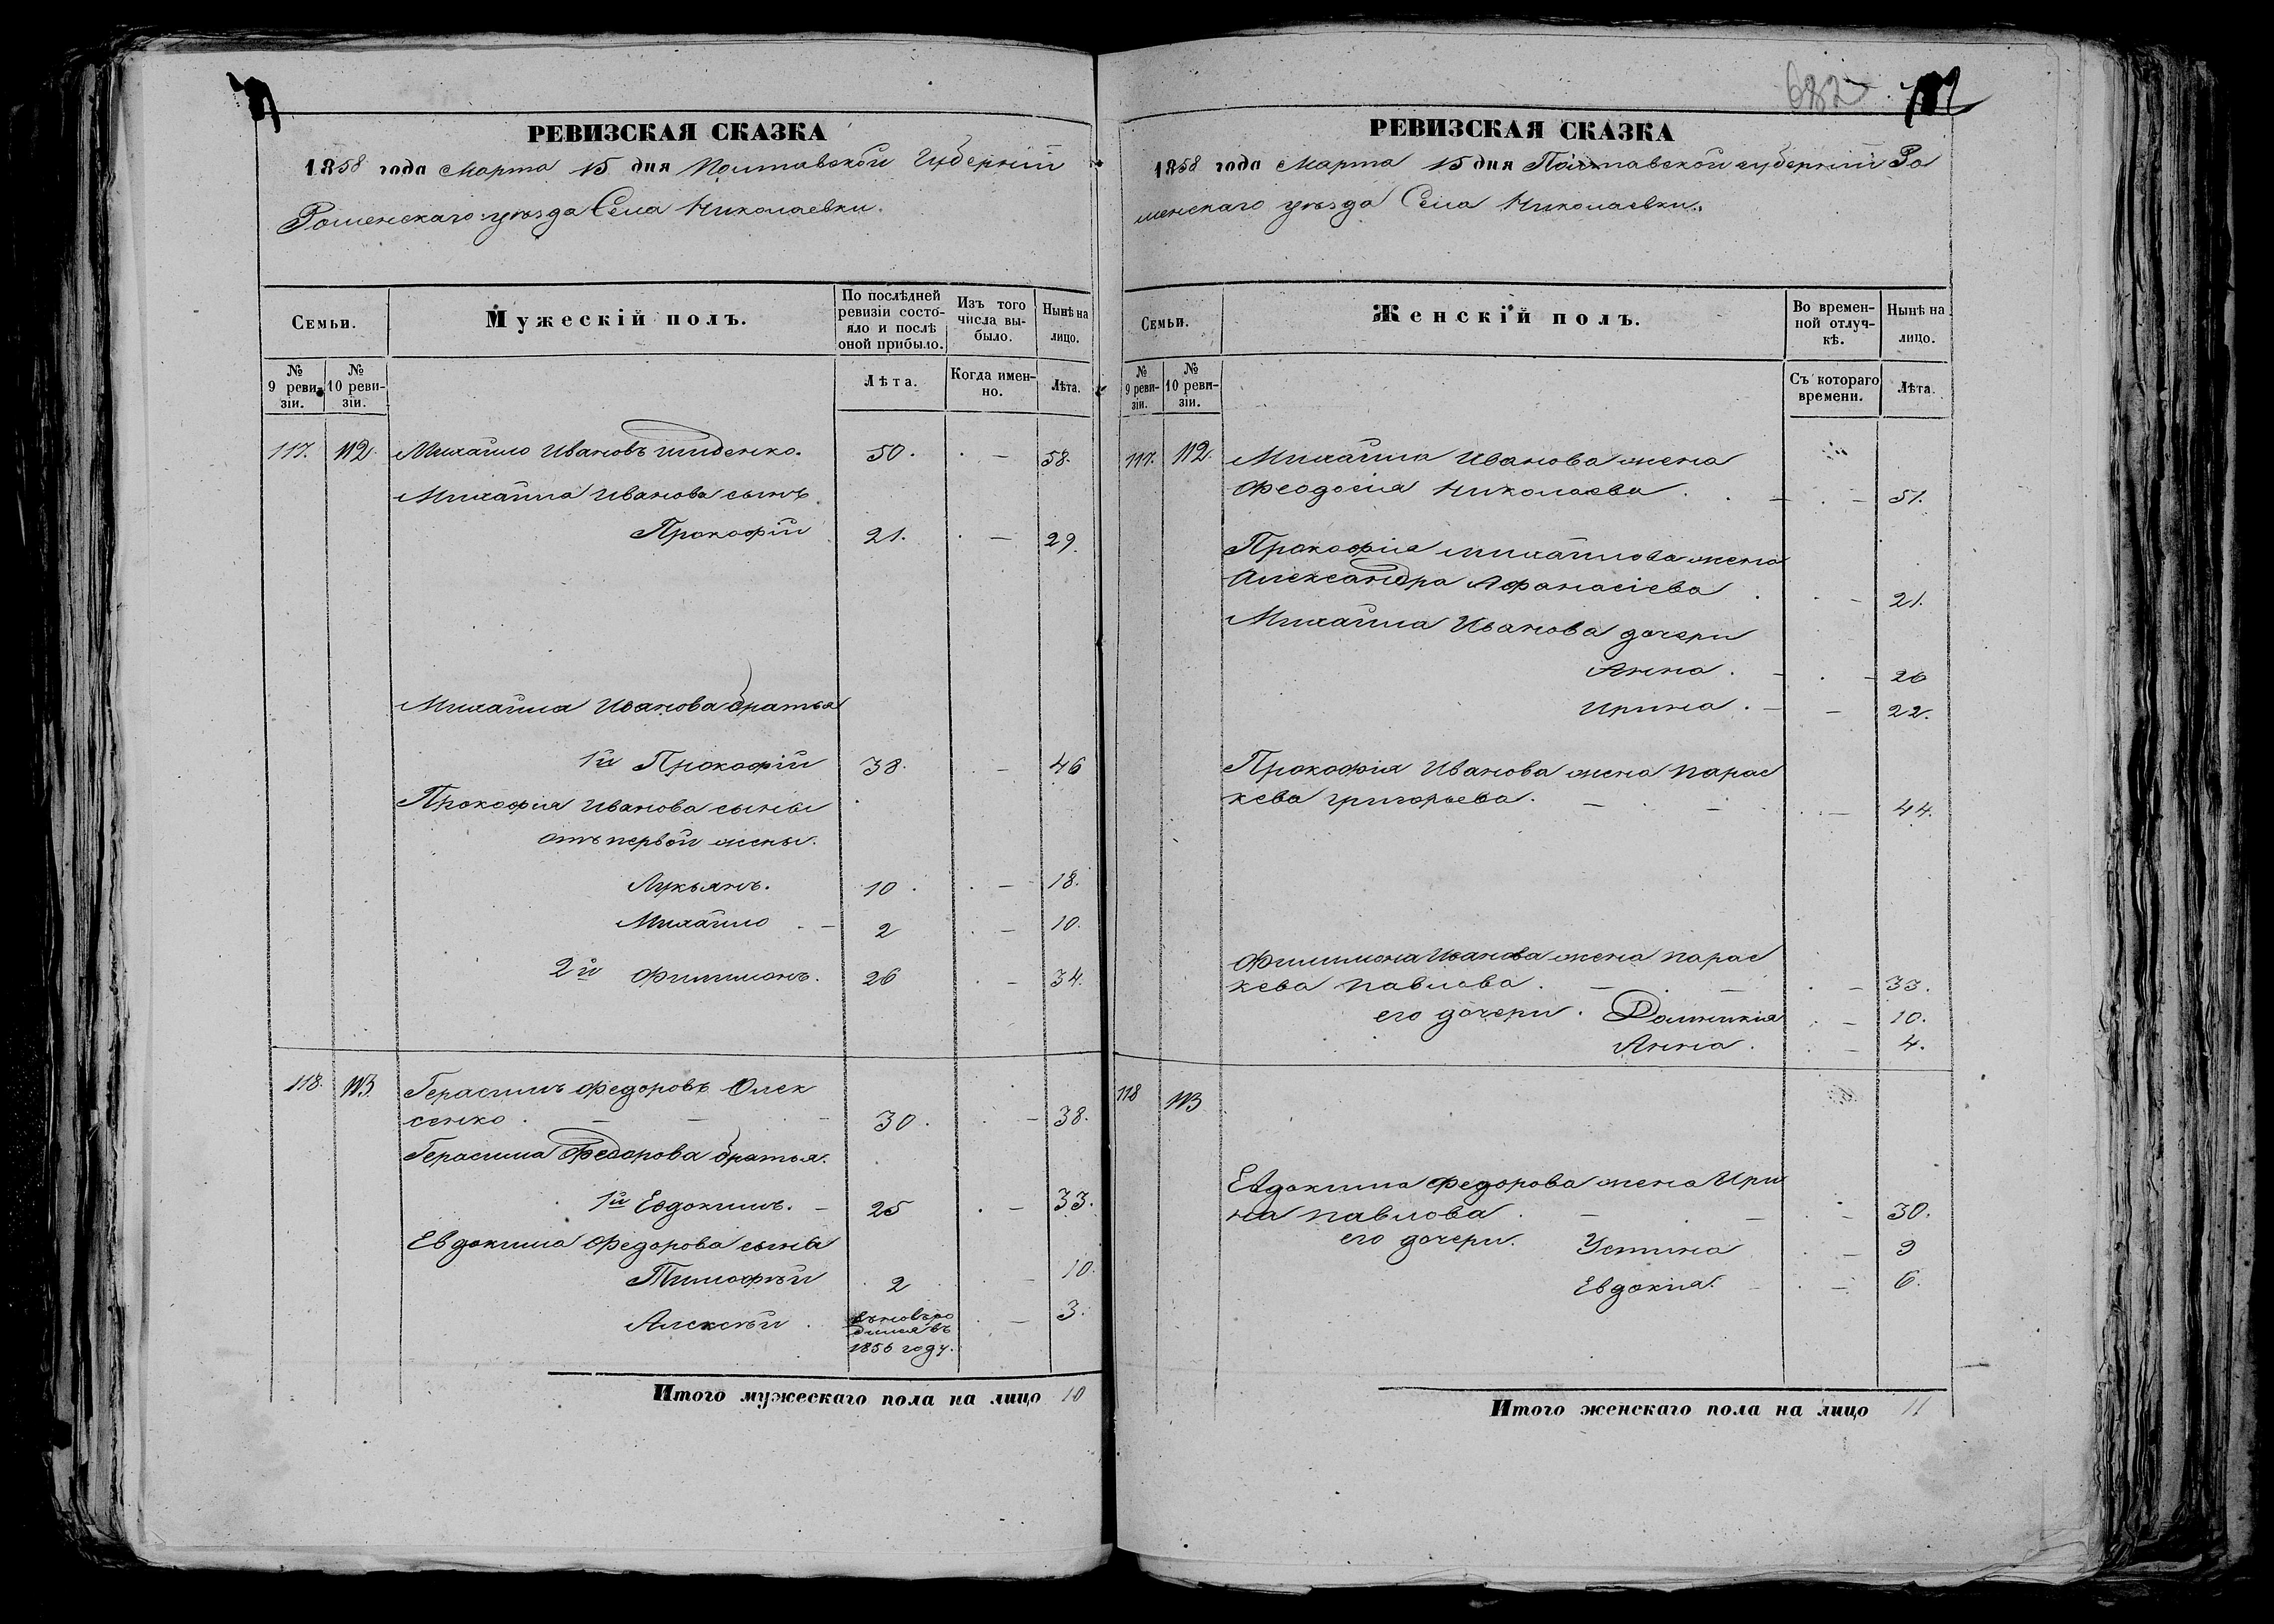 РЕВИЗСКАЯ СКАЗКА
1858 года Марта 15 дня Полтавской Губерніи
Роменскаго уѣзда Села Николаевки.
Семьи.
Мужескій полъ.
По послѣдней ревизіи состояло и послѣ оной прибыло.
Изъ того числа выбыло.
Нынѣ на лицо.
№ 9 ревизіи.
№ 10 ревизіи.
Лѣта.
Когда именно.
Лѣта.
117. 112 Михайло Ивановъ 50. — 58.
Михайла Иванова сынъ
Прокофій 21. — 29.
Михайла Иванова братья
1й Прокофій 38. — 46
Прокофія Иванова сыны
отъ первой жены.
Лукьянъ. 10. — 18.
Михайло — 2 — 10.
2й Филимонъ. 26 — 34.
118. 113 Герасимъ Федоровъ Олек
сенко. — — — 30. — 38.
Герасима Федорова братья.
1й Евдокимъ. — 25 — 33.
Евдокима Федорова сыны
Тимофѣй 2 — 10.
Алексѣй. — 3.
1856 году.
Итого мужескаго пола на лицо 10
682
РЕВИЗСКАЯ СКАЗКА
1858 года Марта 15 дня Полтавской губерніи Ро
менскаго уѣзда Села Николаевки.
Семьи.
Женскій полъ.
Во временной отлучкѣ.
Нынѣ на лицо.
№ 9 ревизіи.
№ 10 ревизіи.
Съ котораго времени.
Лѣта.
117. 112. Михайла Иванова жена
Феодосия Николаева. — — 51.
Прокофія Михайлова жена
Александра Афанасіева — 21.
Михайла Иванова дочери
Анна. — — 26
Ирина. — — 22.
Прокофія Иванова жена Парас
кева Григорьева. — — — 44.
Филимона Иванова жена Парас
кева Павлова. — — — 33.
его дочери. Домникія — 10.
Анна. — 4.
118 113
Евдокима Федорова жена Ири
на Павлова. — — — 30.
его дочери. Устина — 9
Евдокия. — 6.
Итого женскаго пола на лицо 11